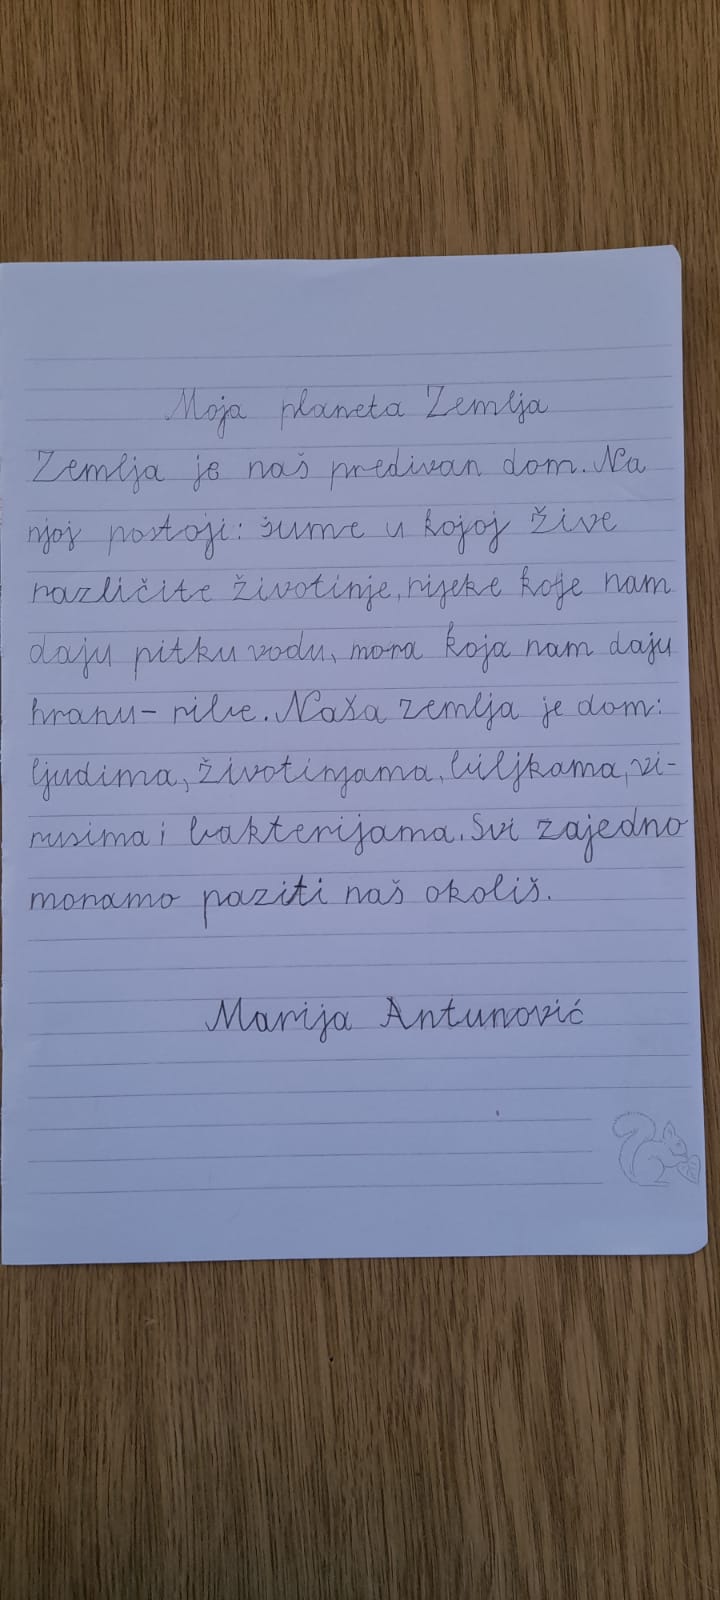 Moja planeta Zemlja
Zemlja je naš predivan dom. Na
njoj postoji: šume u kojoj žive
različite životinje, rijeke koje nam
daju pitku vodu, mora koja nam daju
hranu- ribe. Naša zemlja je dom:
ljudima, životinjama, biljkama, vi-
rusima i bakterijama. Svi zajedno
moramo paziti naš okoliš.
Marija Antunović